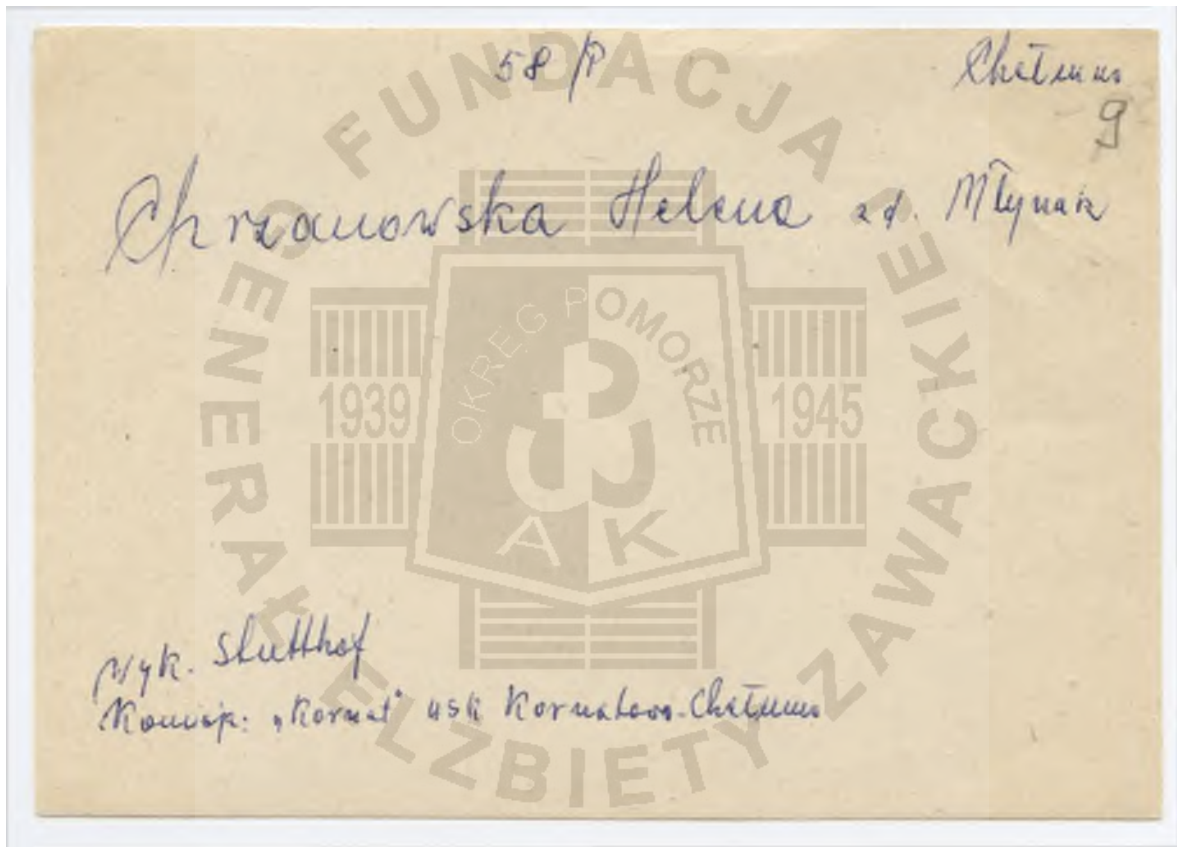 58/P Chełmno
9
Chrzanowska Helena zd. Młynarz
Wyk. Stutthof
Konsp: "Kornat" Kornatowo-Chełmno
FUNDACJA
GENERAŁ ELŻBIETY ZAWACKIEJ
OKRĘG POMORZE
1939 1945
A K